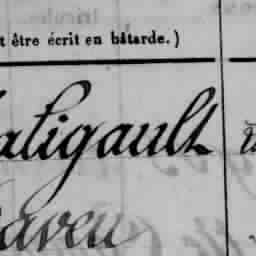 t être écrit en bâtarde.)
aligault
aven